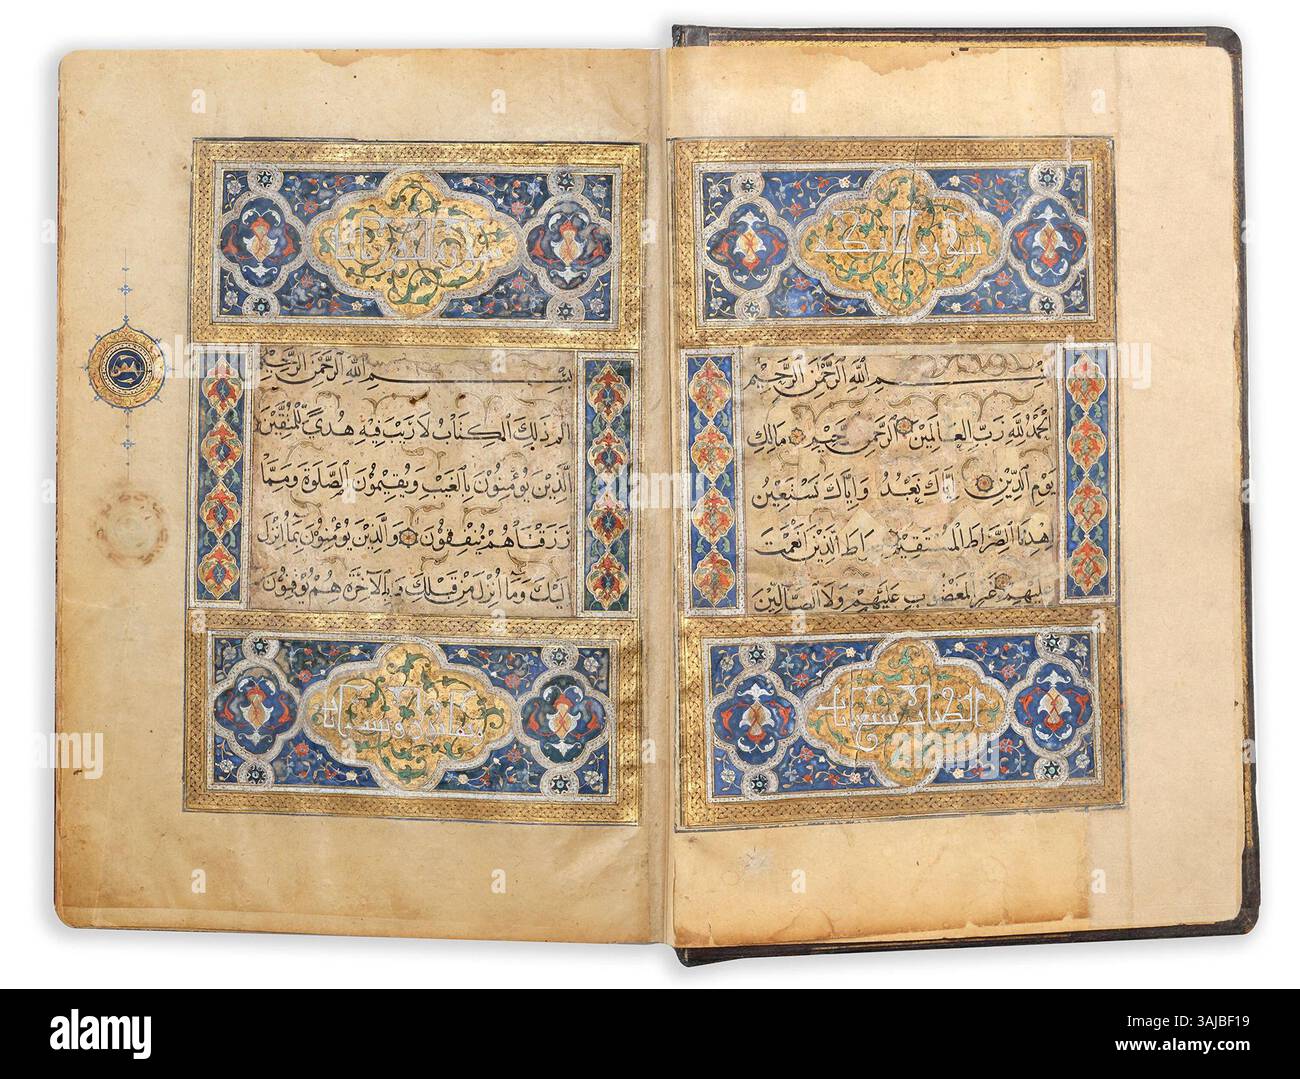 سورة
بِسْمِ اللَّهِ الرَّحْمٰنِ الرَّحِيْمِ
اَلْحَمْدُ لِلَّهِ رَبِّ الْعَالَمِيْنَ الرَّحْمٰنِ الرَّحِيْمِ مَالِكِ
يَوْمِ الدِّيْنِ اِيَّاكَ نَعْبُدُ وَاِيَّاكَ نَسْتَعِيْنُ
اِهْدِنَا الصِّرَاطَ الْمُسْتَقِيْمَ صِرَاطَ الَّذِيْنَ اَنْعَمْتَ
عَلَيْهِمْ غَيْرِ الْمَغْضُوْبِ عَلَيْهِمْ وَلَا الضَّالِّيْنَ
الكتاب سبع آيات
سورة البقرة
بِسْمِ اللَّهِ الرَّحْمٰنِ الرَّحِيْمِ
الم ذٰلِكَ الْكِتَابُ لَا رَيْبَ فِيْهِ هُدًى لِلْمُتَّقِيْنَ
الَّذِيْنَ يُؤْمِنُوْنَ بِالْغَيْبِ وَيُقِيْمُوْنَ الصَّلٰوةَ وَمِمَّا
رَزَقْنَاهُمْ يُنْفِقُوْنَ وَالَّذِيْنَ يُؤْمِنُوْنَ بِمَا اُنْزِلَ
اِلَيْكَ وَمَا اُنْزِلَ مِنْ قَبْلِكَ وَبِالْآخِرَةِ هُمْ يُوْقِنُوْنَ
alamy
Image ID: 3AJBF19
www.alamy.com